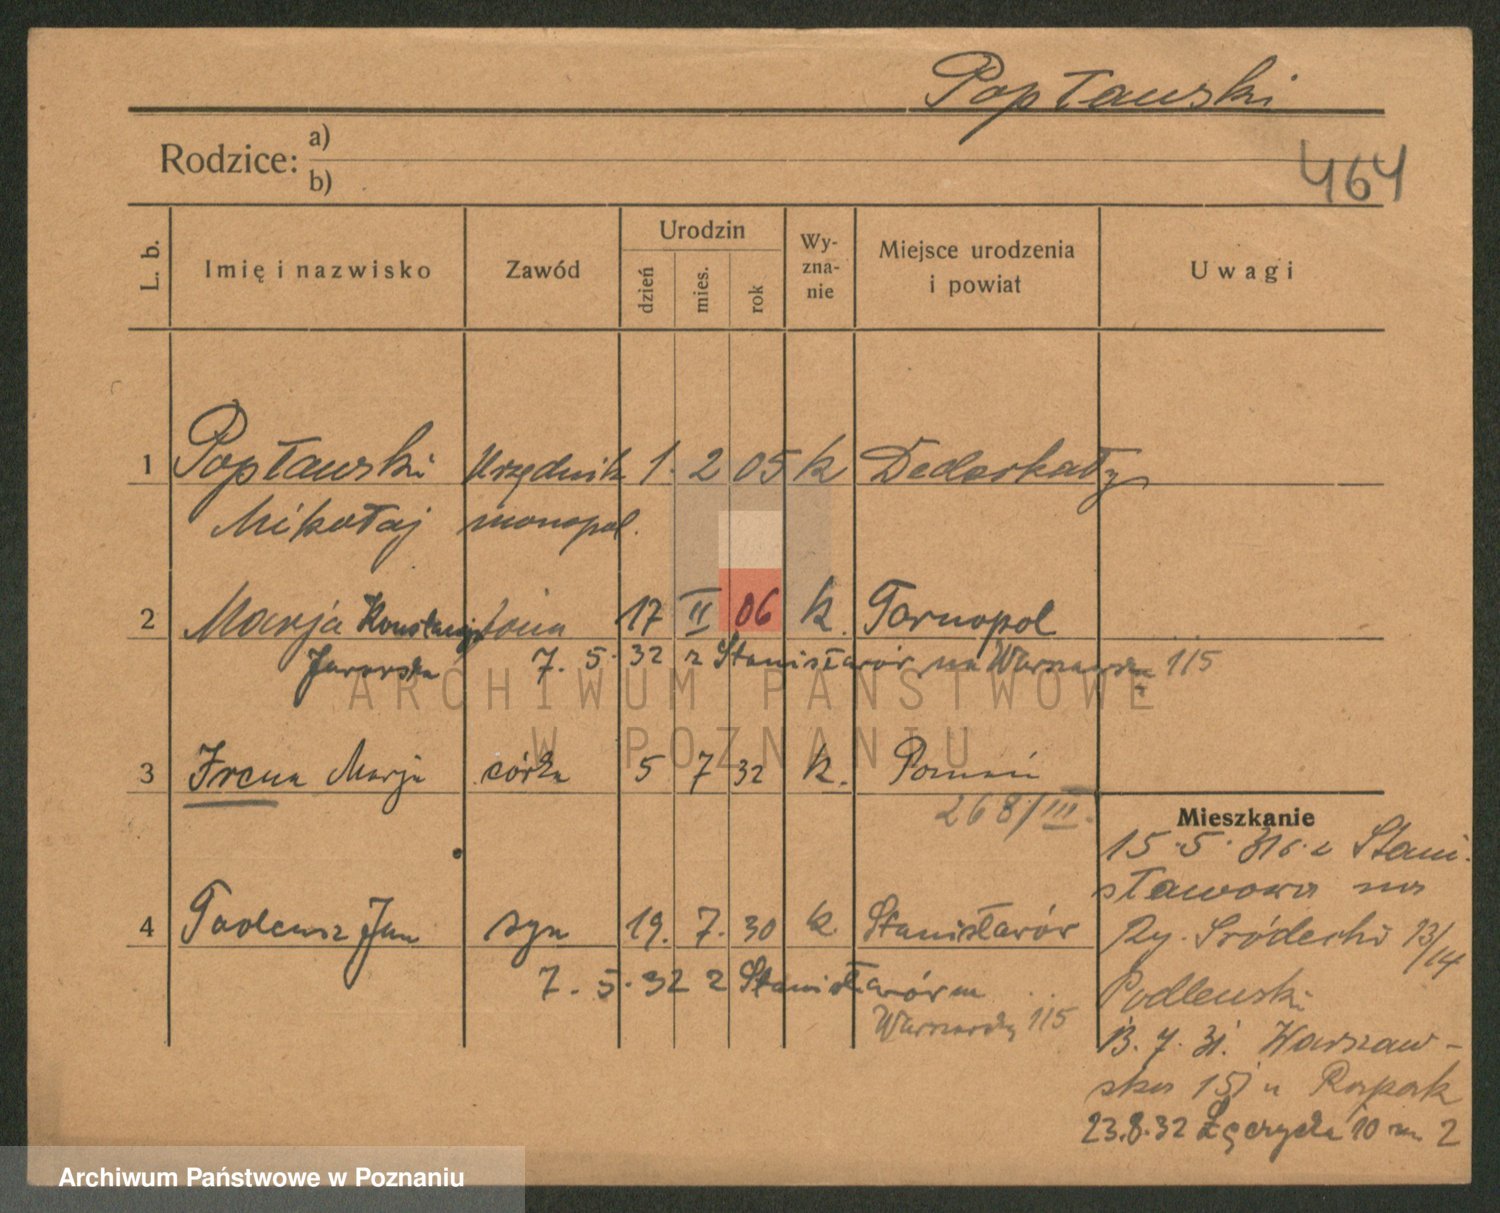 Popławski
Rodzice: a)
b)
464
L. b.
Imię i nazwisko
Zawód
Urodzin
dzień
mies.
rok
Wy-
zna-
nie
Miejsce urodzenia
i powiat
Uwagi
1 Popławski Urzędnik 1. 2 05 k Dederkały
Mikołaj monopol.
2 Marja żona 17 II 06 k. Tarnopol
7. 5. 32 z Stanisławów na Warszawską 115
3 Irena Marja córka 5 7 32 k. Poznań
268/III.
Mieszkanie
15.5.31 z Stani-
sławowa na
4 Tadeusz Jan syn 19. 7. 30 k. Stanisławów
Ry. Śródecki 13/14
7. 5. 32 z Stanisławów na
Warszawską 115
Podlewski
13. 7. 31. Warszaw-
ska u
23.8.32 Łęczycka 10 m 2
ARCHIWUM PAŃSTWOWE
W POZNANIU
Archiwum Państwowe w Poznaniu